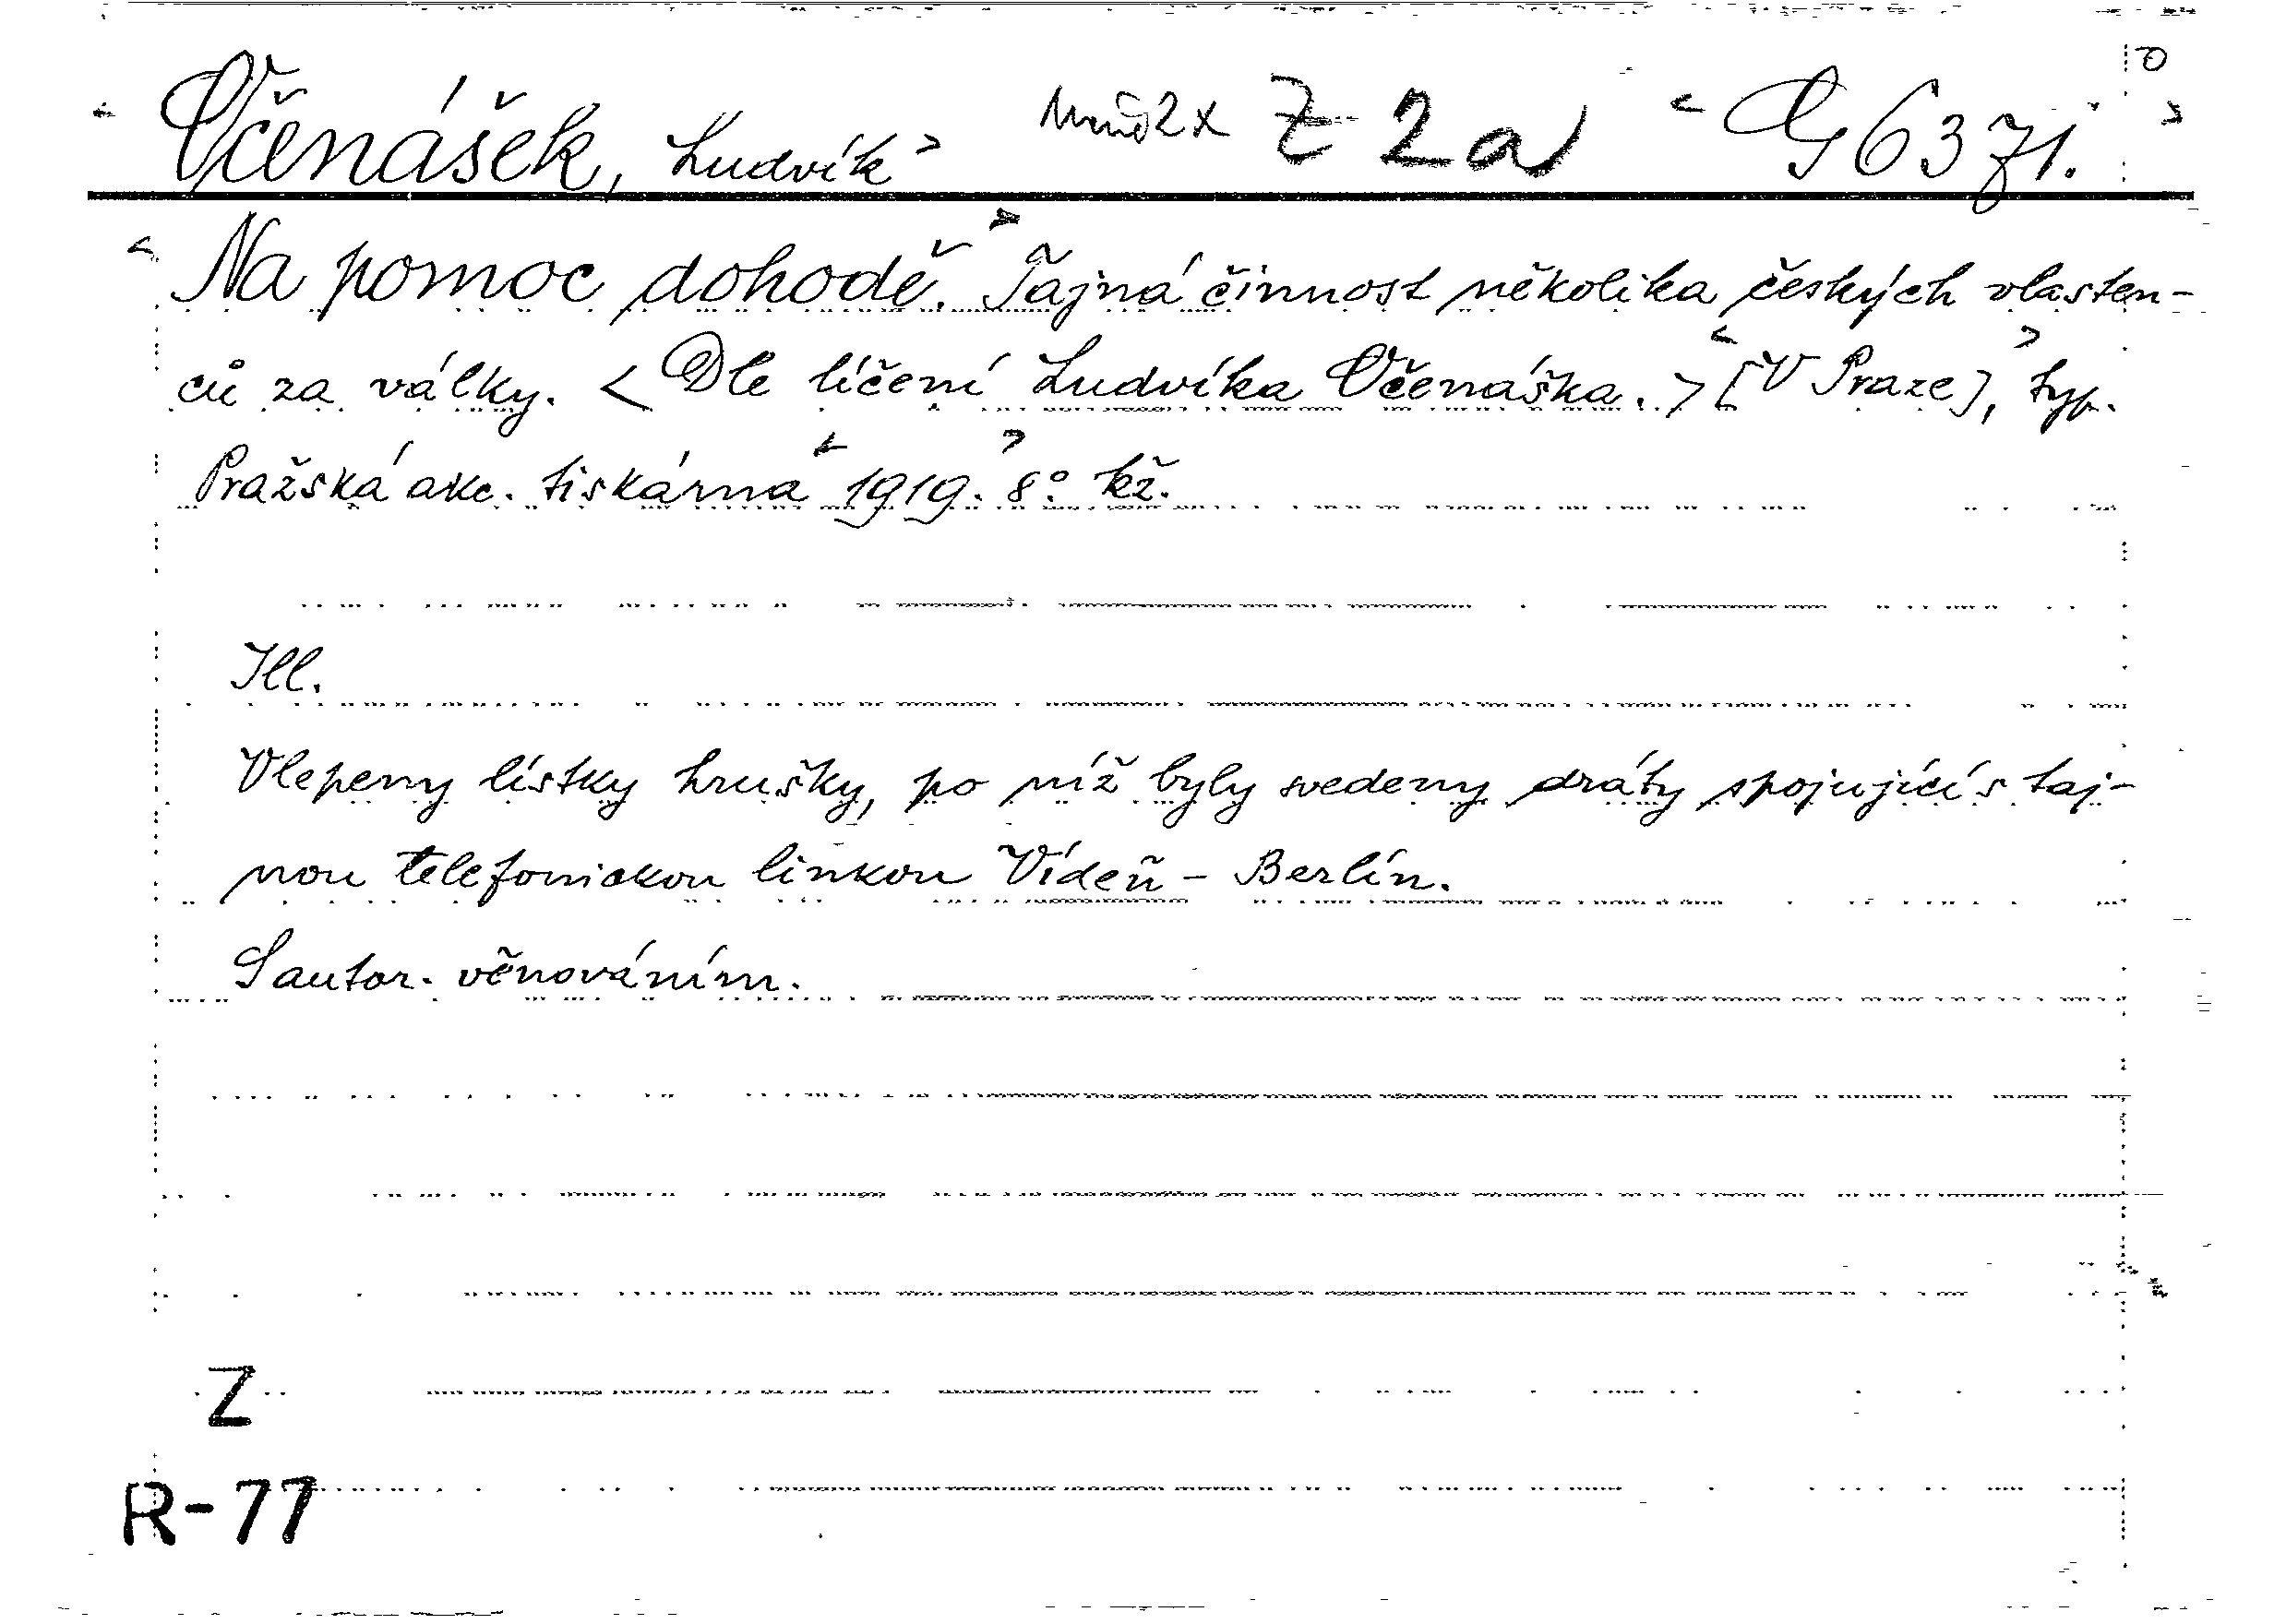 Očenášek, Ludvík Z 2a G 6371.
Na pomoc dohodě. Tajná činnost několika českých vlasten-
ců za války. < Dle líčení Ludvíka Očenáška. > [V Praze], typ.
Pražská akc. tiskárna 1919. 8° kž.
Ill.
Vlepeny lístky hrušky, po níž byly svedeny dráty spojující s taj-
nou telefonickou linkou Vídeň - Berlín.
S autor. věnováním.
Z
R-77